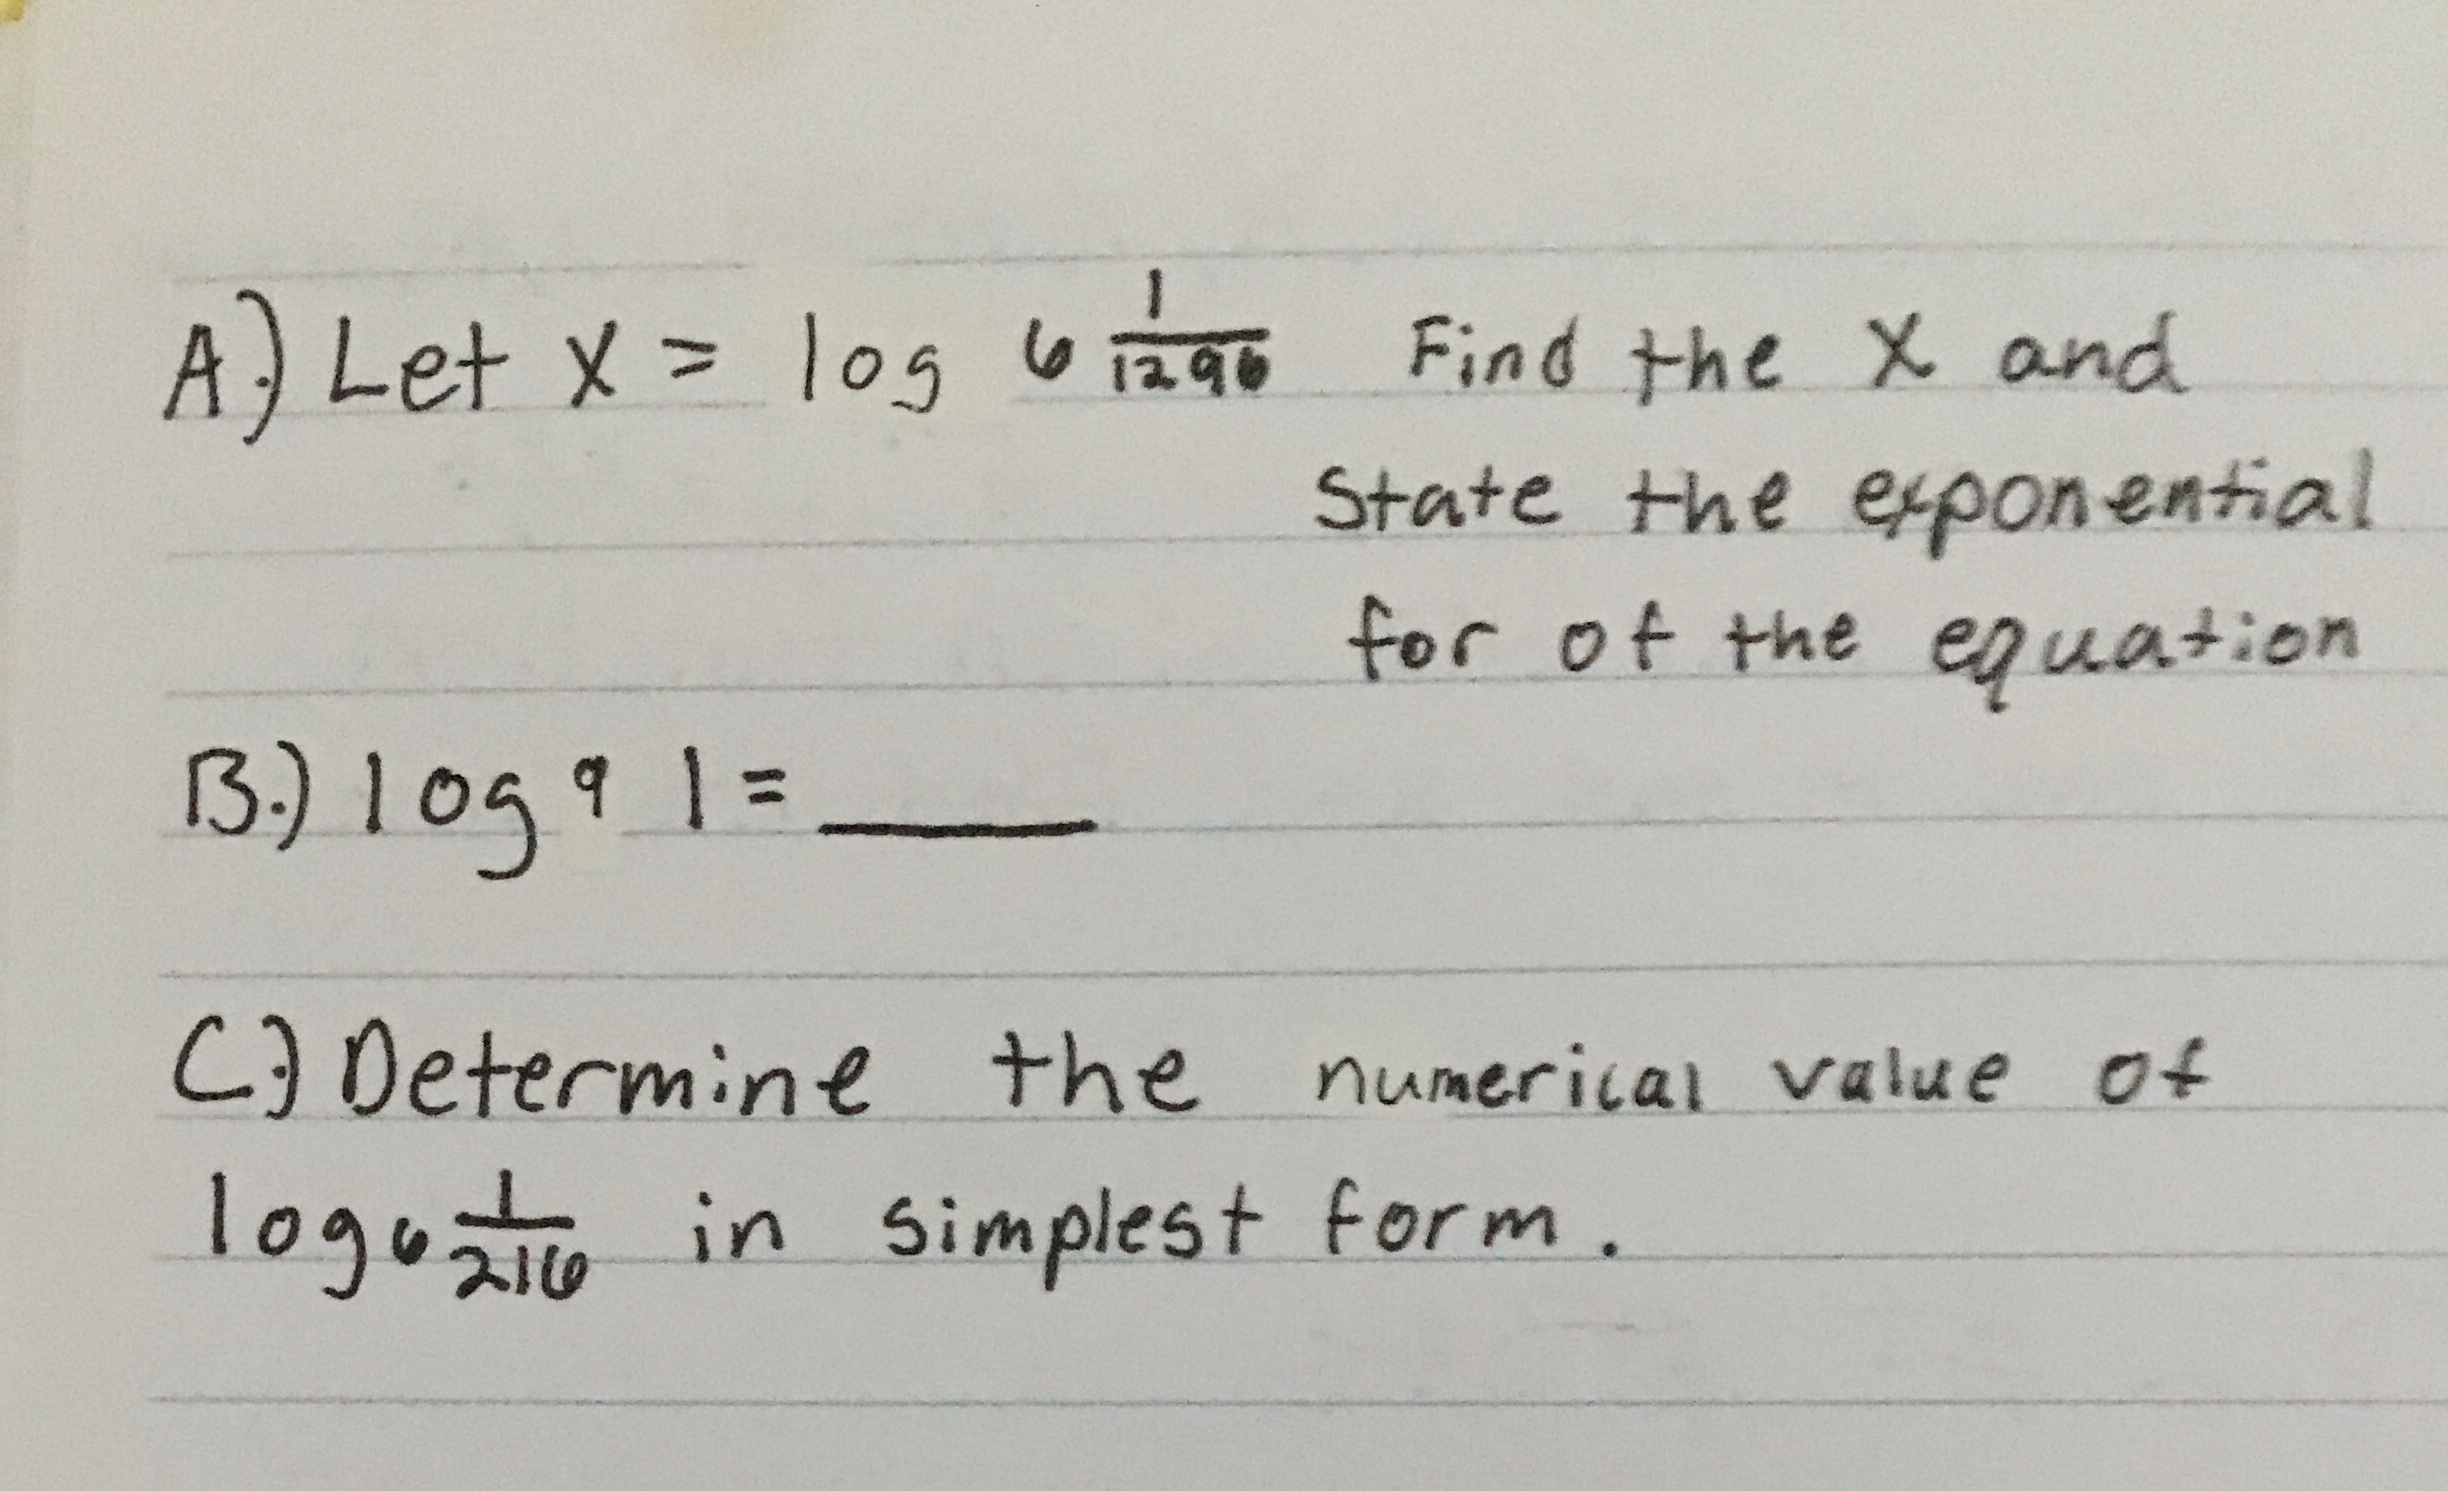 A.) Let x = log 6 1/1296 Find the x and
State the exponential
for of the equation
B.) log 9 1 = ____
C.) Determine the numerical value of
log6 1/216 in simplest form.